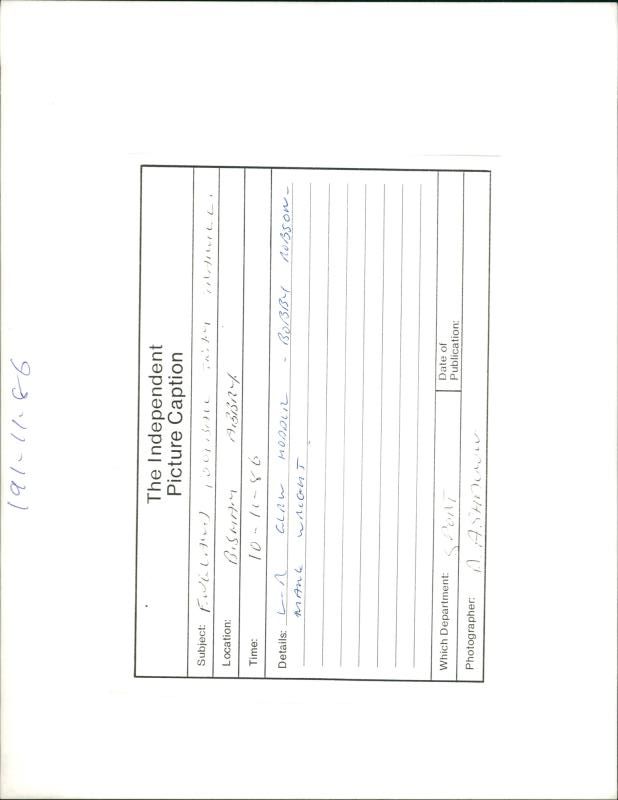 191-11-86
The Independent
Picture Caption
Subject: ENGLAND FOOTBALL
Location: BISHAM ABBEY
Time: 10-11-86
Details: L-R GLEN HODDLE - BOBBY ROBSON -
MARK WRIGHT
Which Department: SPORT
Date of
Publication:
Photographer: D. ASHDOWN